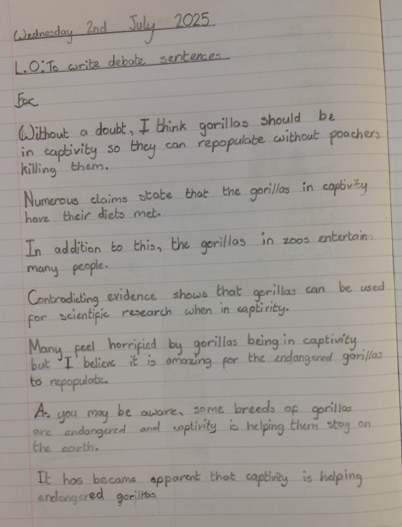 Wednesday 2nd July 2025
L.O: To write debate sentences
For
Without a doubt, I think gorillas should be
in captivity so they can repopulate without poachers
killing them.
Numerous claims state that the gorillas in captivity
have their diets met.
In addition to this, the gorillas in zoos entertain
many people.
Contradicting evidence shows that gorillas can be used
for scientific research when in captivity.
Many feel horrified by gorillas being in captivity
but I believe it is amazing for the endangered gorillas
to repopulate.
As you may be aware, some breeds of gorillas
are endangered and captivity is helping them stay on
the earth.
It has became apparent that captivity is helping
endangered gorillas